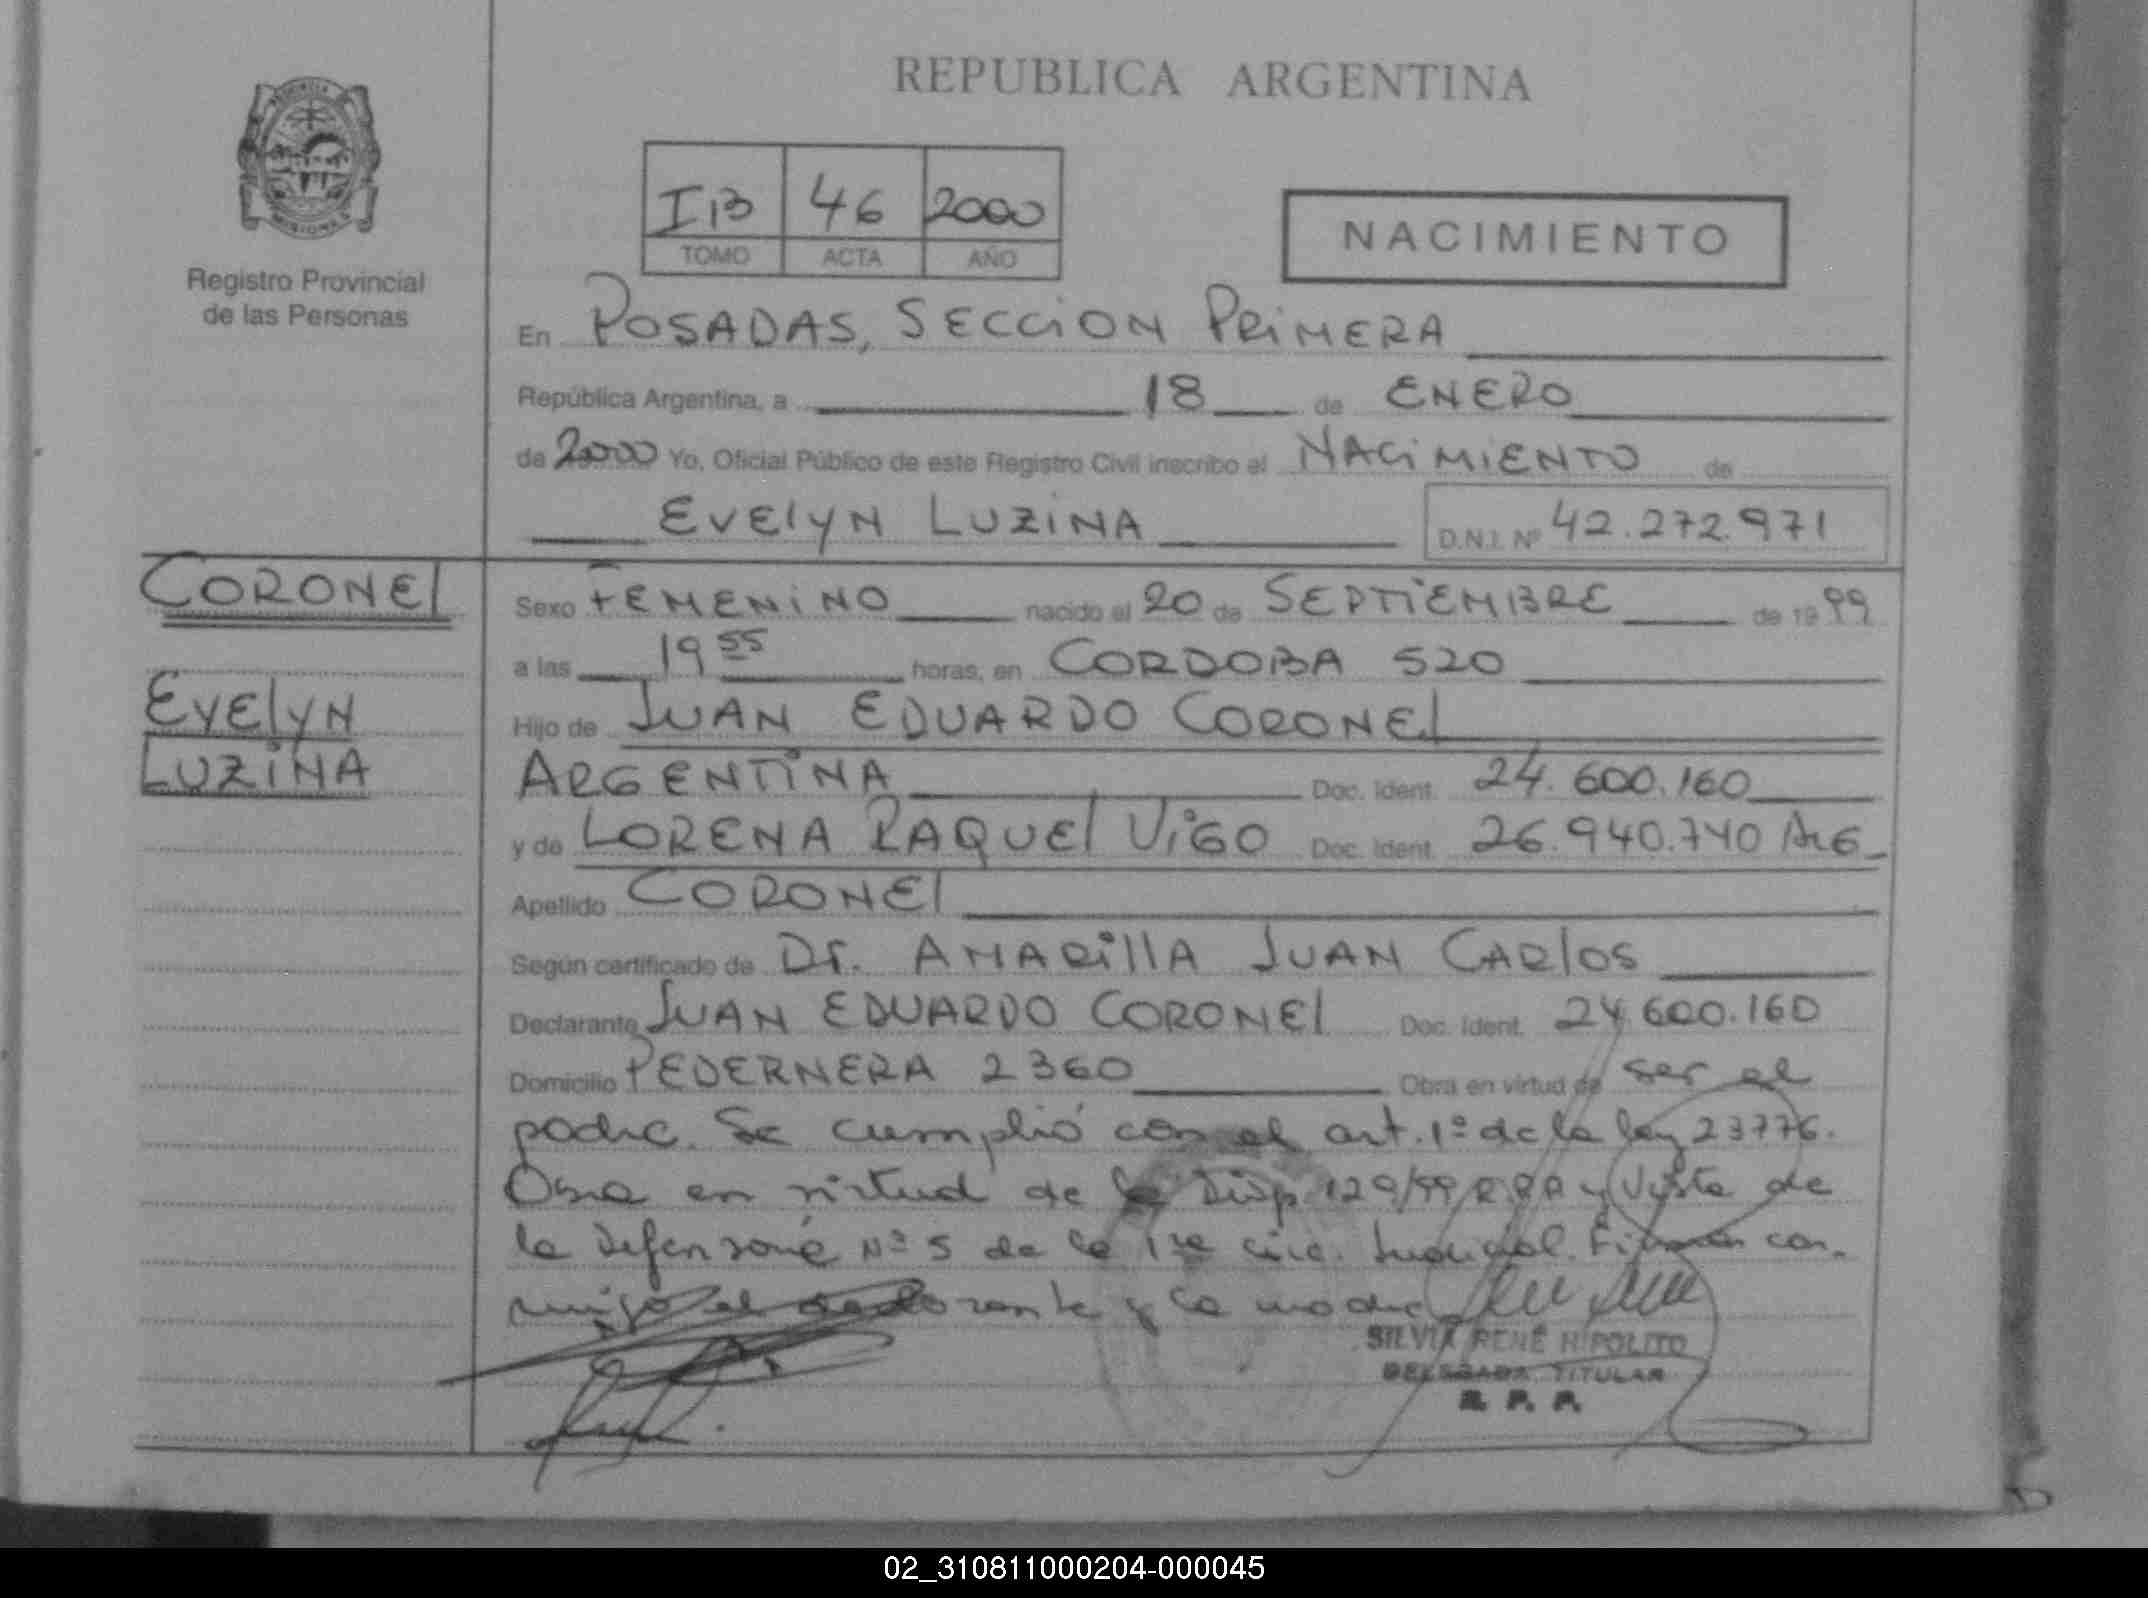 REPUBLICA ARGENTINA
PROVINCIA
MISIONES
Registro Provincial
de las Personas
I B 46 2000
TOMO ACTA AÑO
NACIMIENTO
En POSADAS, SECCiON PRiMERA
República Argentina, a 18 de ENERO
de 2000 Yo, Oficial Público de este Registro Civil inscribo el NACiMiENTO de
EVElyN LUZiNA D.N.I. Nº 42.272.971
CORONEl
EVElyN
LUZiNA
Sexo FEMENiNO nacido el 20 de SEPTiEMBRE de 1999
a las 19 55 horas, en CORDOBA 520
Hijo de JUAN EDUARDO CORONEl
ARGENTiNA Doc. Ident. 24.600.160
y de LORENA RAQUEl ViGO Doc. Ident. 26.940.740 ArG
Apellido CORONEl
Según certificado de Dr. AMARillA JUAN CARlos
Declarante JUAN EDUARDO CORONEl Doc. Ident. 24.600.160
Domicilio PEDERNERA 2360 Obra en virtud de ser el
padre. Se cumplió con el art. 1º de la ley 23776.
Obra en virtud de la Disp. 129/99 R P P y Vista de
la Defensoría Nº 5 de la 1ra circ. Judicial. Firman con-
migo el declarante y la madre
SILVIA RENÉ HIPOLITO
DELEGADA TITULAR
R. P. P.
02_310811000204-000045